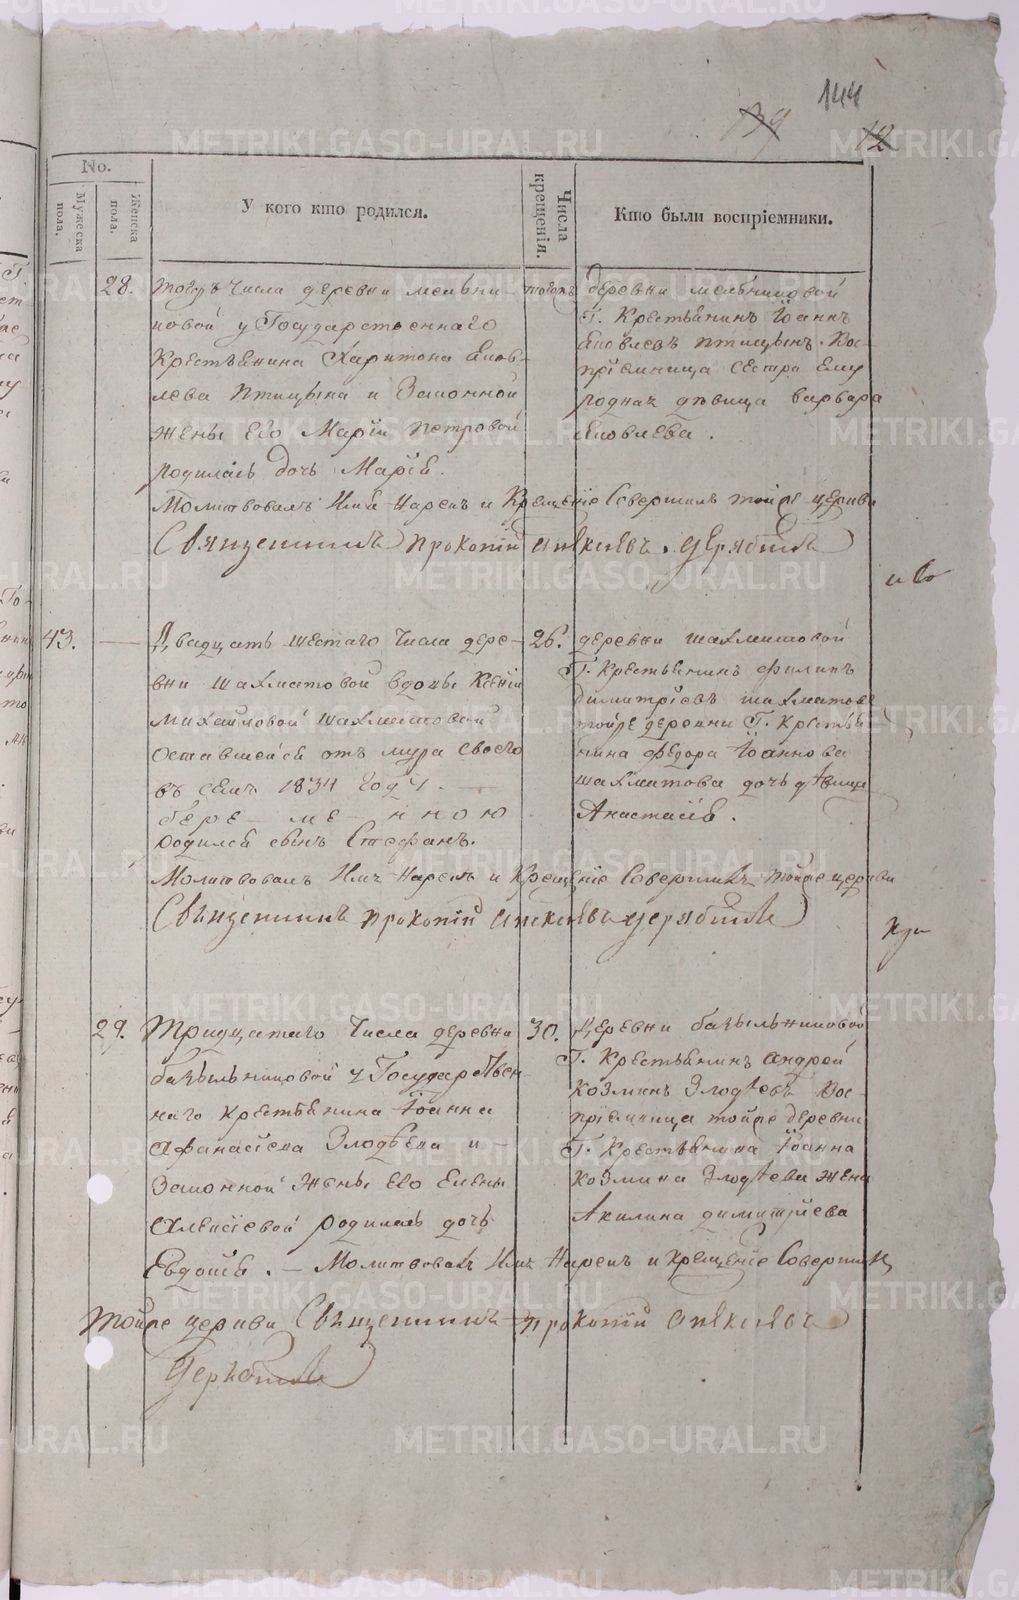 144
139
12
No.
Мужеска пола.
Женска пола.
У кого кто родился.
Числа крещенія.
Кто были воспріемники.
28.
тогожъ Числа деревни мельни-
ковой у Государственнаго
Крестьянина Харитона Яков-
лева Птицына и Законной
жены Его Маріи Петровой
родилась дочь Марія.
тогожъ
деревни мельниковой
Г. Крестьянинъ Іоаннъ
Яковлевъ птицынъ. Вос-
пріемница сестра Ему
родная дѣвица варвара
Яковлева.
Молитвовалъ Имя Нарекъ и Крещеніе Совершилъ тойже церкви
Священникъ Прокопій Алексіевъ Дерябинъ
43.
Двадцать шестаго Числа дере-
вни шахматовой вдовы Ксеніи
михайловой шахматовой
оставшейся отъ мужа своего
въ семъ 1834 году
бере - ме - нною
родился сынъ Стефанъ.
26.
деревни шахматовой
Г. Крестьянинъ филипъ
димитріевъ шахматовъ
тойже деревни Г. Крестья
нина Федора Іоаннова
шахматова дочь дѣвица
Анастасія.
Молитвовалъ Имя Нарекъ и Крещеніе Совершилъ тойже церкви
Священникъ Прокопій Алексіевъ Дерябинъ
29.
Тридцатаго Числа деревни
базыльниковой у Государствен-
наго крестьянина Іоанна
Афанасіева Злодѣева и
Законной жены Его Елены
Алексіевой родилась дочь
30.
Деревни базыльниковой
Г. Крестьянинъ андрей
Козминъ Злодѣевъ Вос-
пріемница тойже деревни
Г. Крестьянина Іоанна
Козмина Злодѣева жена
Акилина димитріева
Евдокія. — Молитвовалъ Имя Нарекъ и Крещеніе Совершилъ
Тойже церкви Священникъ Прокопій Алексіевъ
Дерябинъ
METRIKI.GASO-URAL.RU